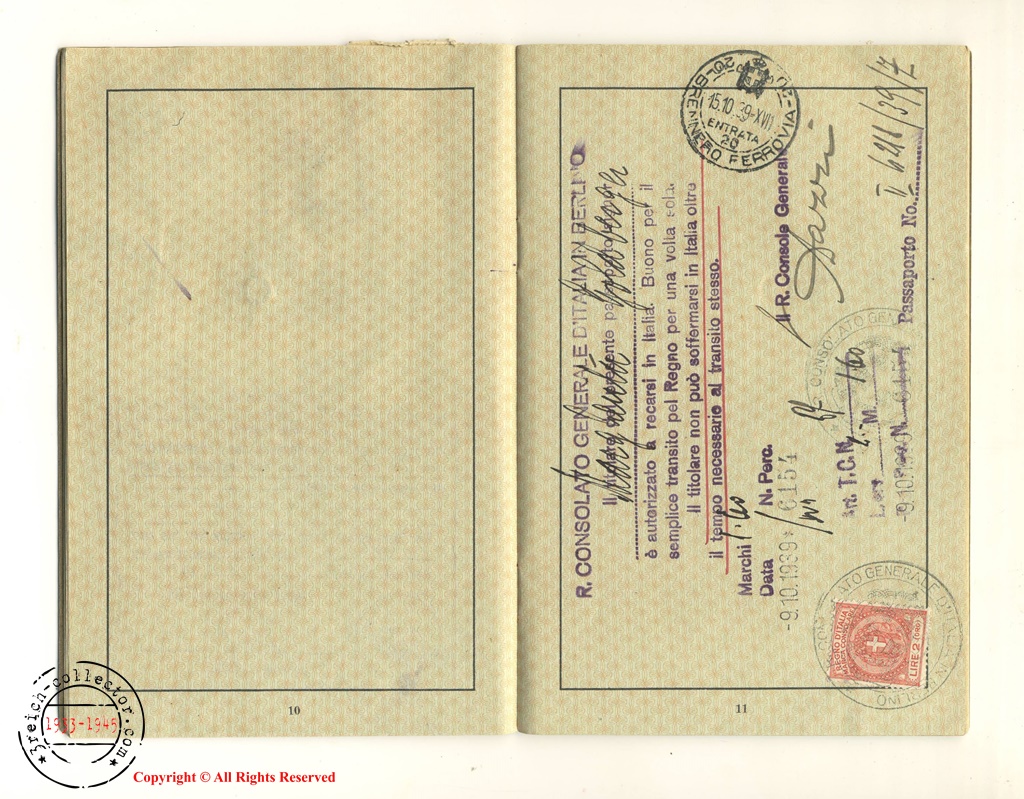 R. CONSOLATO GENERALE D'ITALIA IN BERLINO
Il titolare del presente passaporto
è autorizzato a recarsi in Italia. Buono per il
semplice transito pel Regno per una volta sola.
Il titolare non può soffermarsi in Italia oltre
il tempo necessario al transito stesso.
Marchi 1.60
Data N. Perc.
-9.10.1939* 6154
Il R. Console Generale
Art. T. C. N. 59
M. 1.60
N. 6154
-9.10.
Passaporto No.
CONSOLATO GENERALE
BRENNERO FERROVIA
15.10.39-XVII
ENTRATA
20
CONSOLATO GENERALE D'ITALIA IN BERLINO
REGNO D'ITALIA
LIRE 2 (ORO)
10
11
3reich-collector.com
1933-1945
Copyright © All Rights Reserved